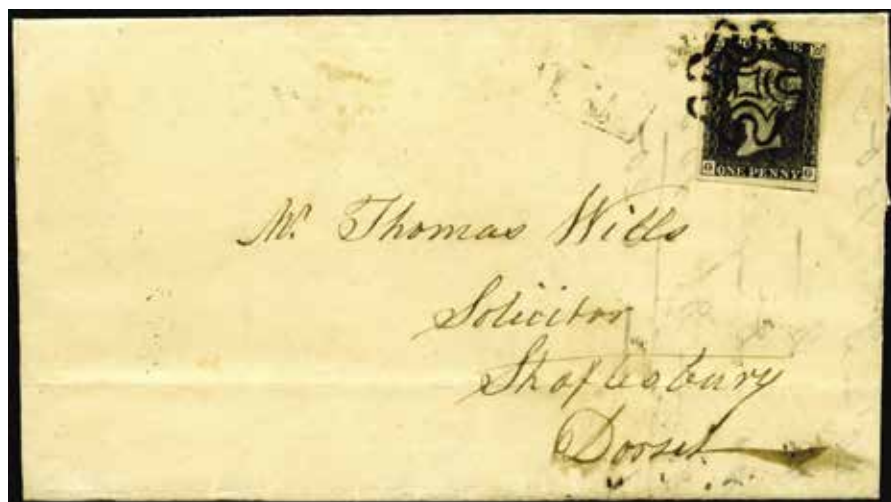 ONE PENNY
Mr. Thomas Wills
Solicitor
Shaftesbury
Dorset